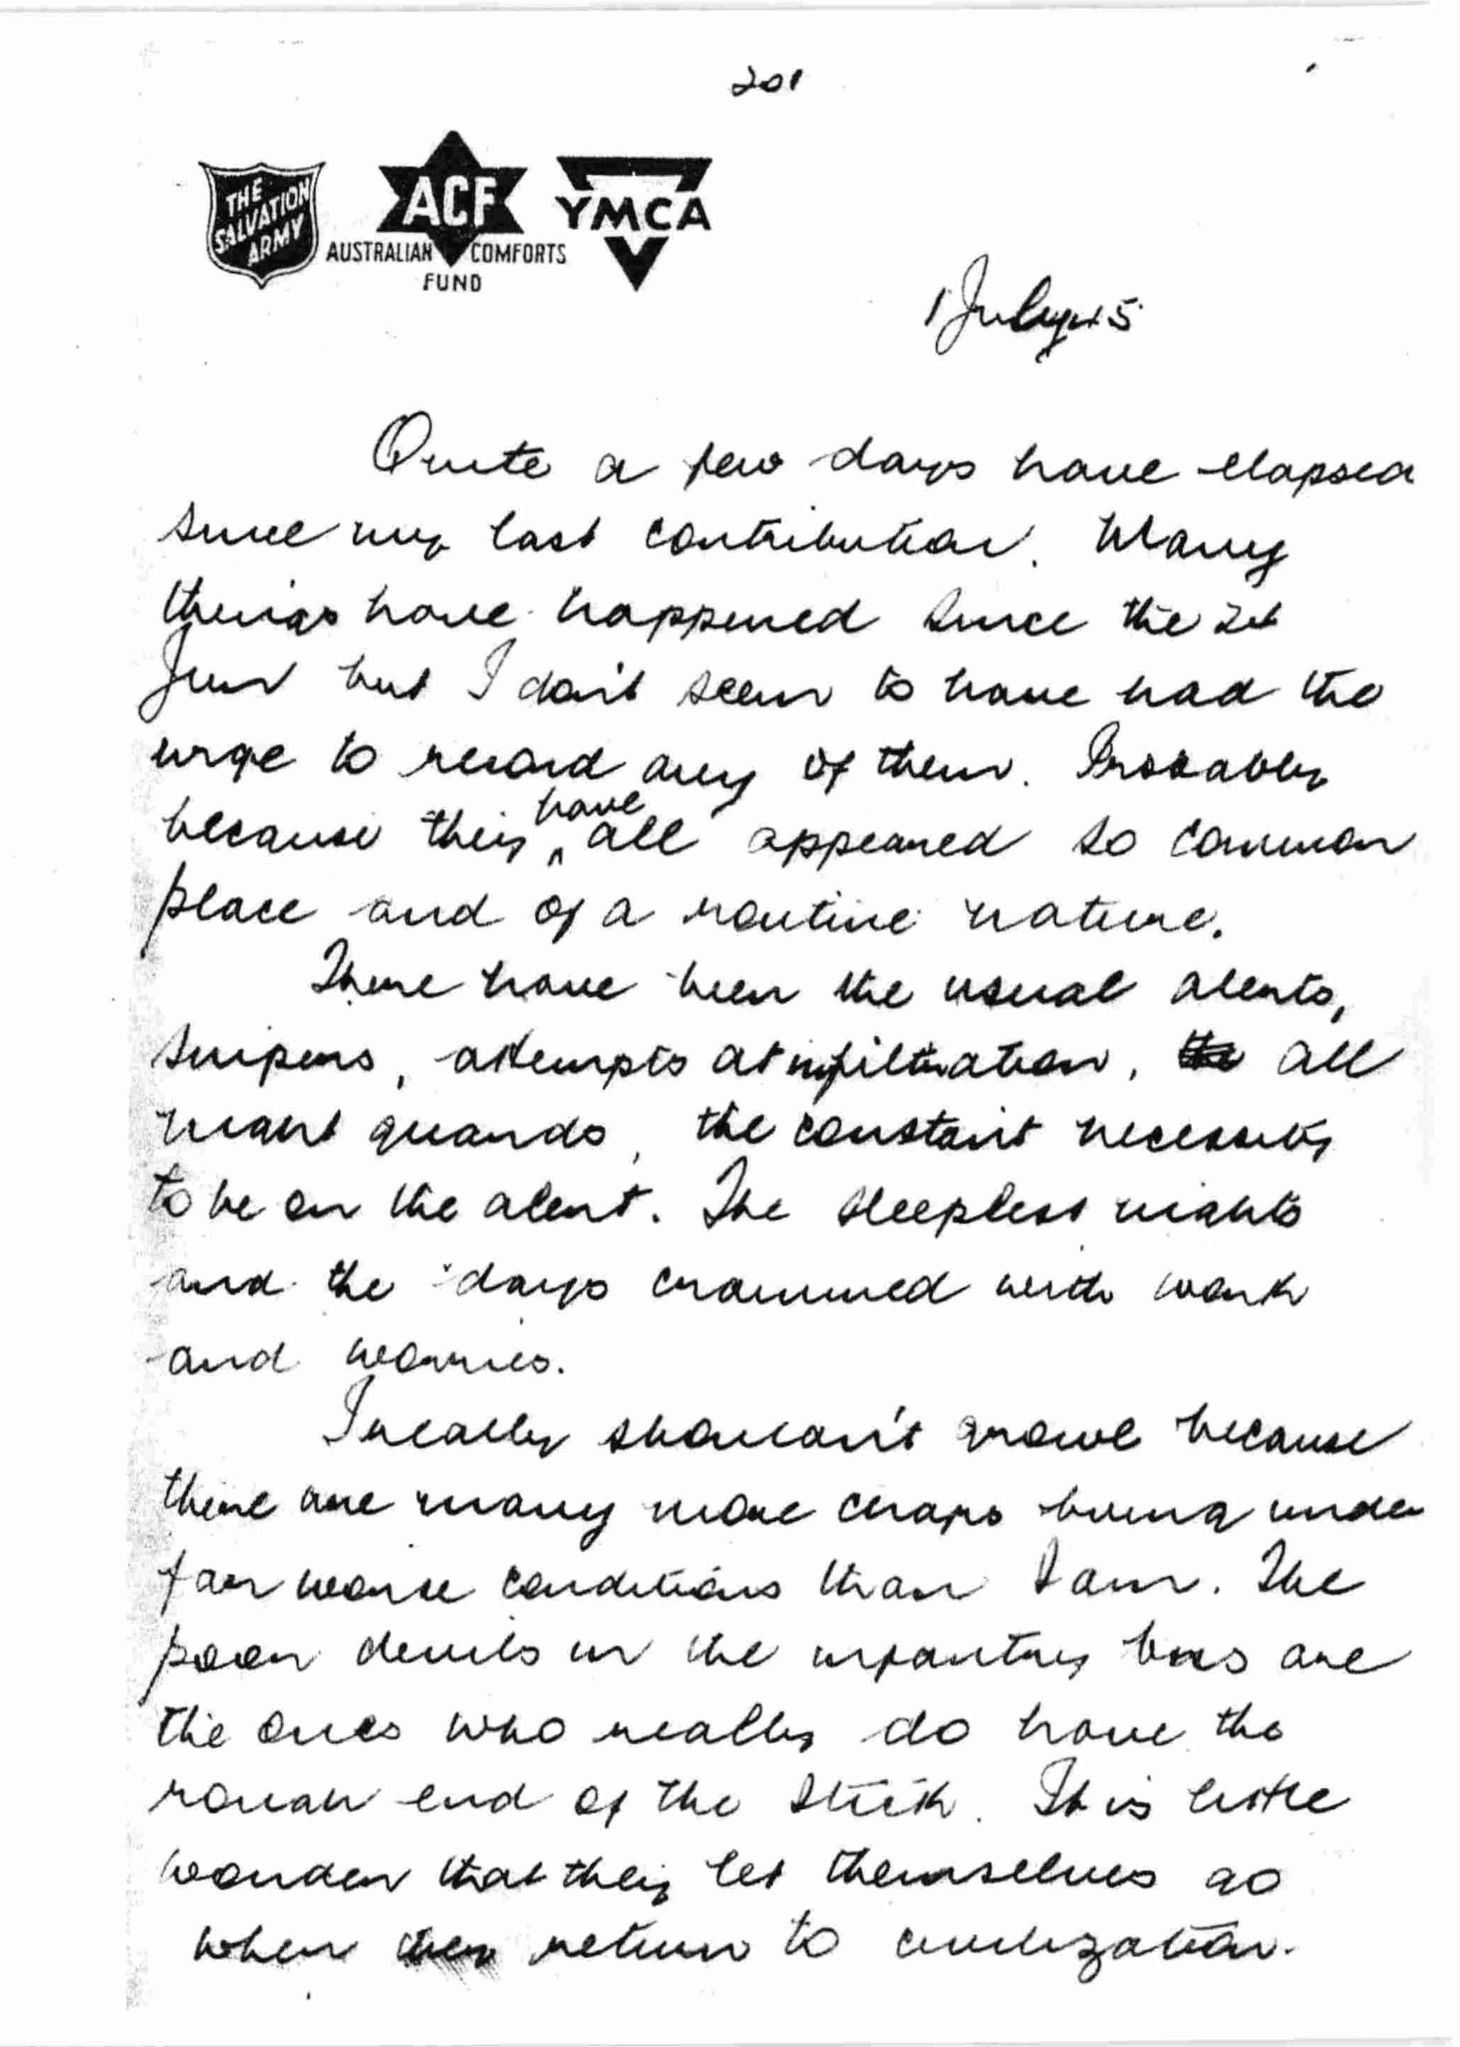 201
THE
SALVATION
ARMY
ACF
AUSTRALIAN COMFORTS
FUND
YMCA
1 July 45
Quite a few days have elapsed
since my last contribution. Many
things have happened since the
June but I don't seem to have had the
urge to record any of them. Probably
because they have all appeared so common
place and of a routine nature.
There have been the usual alerts,
snipers, attempts at infiltration, the all
night guards, the constant necessity
to be on the alert. The sleepless nights
and the days crammed with work
and worries.
I really shouldn't growl because
there are many more chaps living under
far worse conditions than I am. The
poor devils in the infantry bns are
the ones who really do have the
rough end of the stick. It is little
wonder that they let themselves go
when they return to civilization.